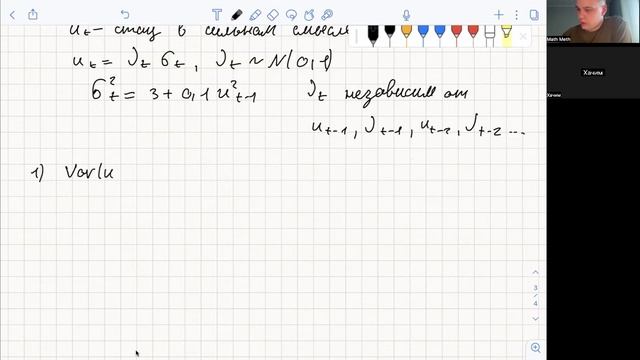 u_t - стац в сильном смысле
u_t = ν_t σ_t , ν_t ~ N(0,1)
σ²_t = 3 + 0,1 u²_{t-1} ν_t независим от
u_{t-1}, ν_{t-1}, u_{t-2}, ν_{t-2} ...
1) Var(u
Math Meth
Хачим
Хачим
3
4